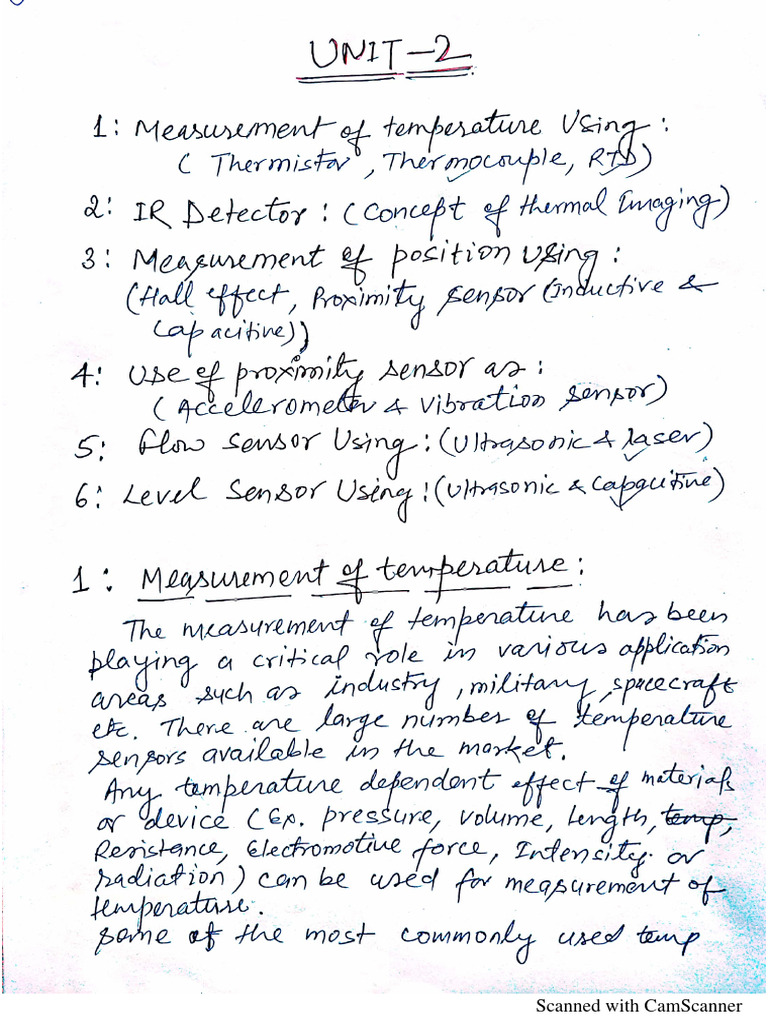 UNIT-2
1: Measurement of temperature Using:
( Thermistor, Thermocouple, RTD)
2: IR Detector: (Concept of thermal Imaging)
3: Measurement of position using:
(Hall effect, Proximity sensor (Inductive &
Capacitive))
4: Use of proximity sensor as:
(Accelerometer & Vibration sensor)
5: flow sensor Using: (Ultrasonic & laser)
6: Level Sensor Using: (Ultrasonic & Capacitive)
1: Measurement of temperature:
The measurement of temperature has been
playing a critical role in various application
areas such as industry, military, spacecraft
etc. There are large number of temperature
sensors available in the market.
Any temperature dependent effect of materials
or device (Ex. pressure, volume, length, temp,
Resistance, Electromotive force, Intensity or
radiation) can be used for measurement of
temperature.
some of the most commonly used temp
Scanned with CamScanner